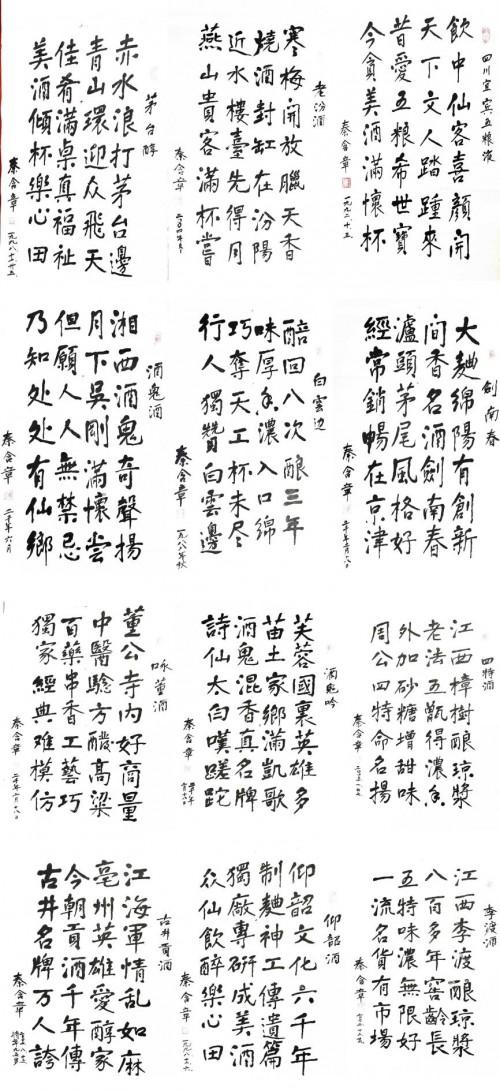 四川宜賓五粮液
飲中仙客喜顏開
天下文人踏踵來
昔愛五粮希世寶
今貪美酒滿懷杯
秦含章
老汾酒
寒梅開放臘天香
燒酒封缸在汾陽
近水樓臺先得月
燕山貴客滿杯嘗
秦含章
茅台醇
赤水浪打茅台邊
青山環迎众飛天
佳肴滿桌真福祉
美酒傾杯樂心田
秦含章
劍南春
大麯綿陽有創新
間香名酒劍南春
瀘頭茅尾風格好
經常銷暢在京津
秦含章
白雲边
醅回八次酿三年
味厚香濃入口綿
巧奪天工杯未尽
行人獨贊白雲邊
秦含章 一九八八年秋
酒鬼酒
湘西酒鬼奇聲揚
月下吳剛滿懷尝
但願人人無禁忌
乃知处处有仙鄉
秦含章 二千年六月
四特酒
江西樟樹酿琼漿
老法五甑得濃香
外加砂糖增甜味
周公四特命名揚
秦含章
酒鬼吟
芙蓉國裏英雄多
苗土家鄉滿凱歌
酒鬼混香真名牌
詩仙太白嘆蹉跎
秦含章
咏董酒
董公寺内好商量
中醫驗方酸高粱
百藥串香工藝巧
獨家經典难模仿
秦含章
李渡酒
江西李渡酿琼漿
八百多年窖齡長
五特味濃無限好
一流名貨有市場
秦含章
仰韶酒
仰韶文化六千年
制麯神工傳遺篇
獨廠專研成美酒
众仙飲醉樂心田
秦含章
古井貢酒
江海軍情乱如麻
亳州英雄愛醇家
今朝貢酒千年傳
古井名牌万人誇
秦含章